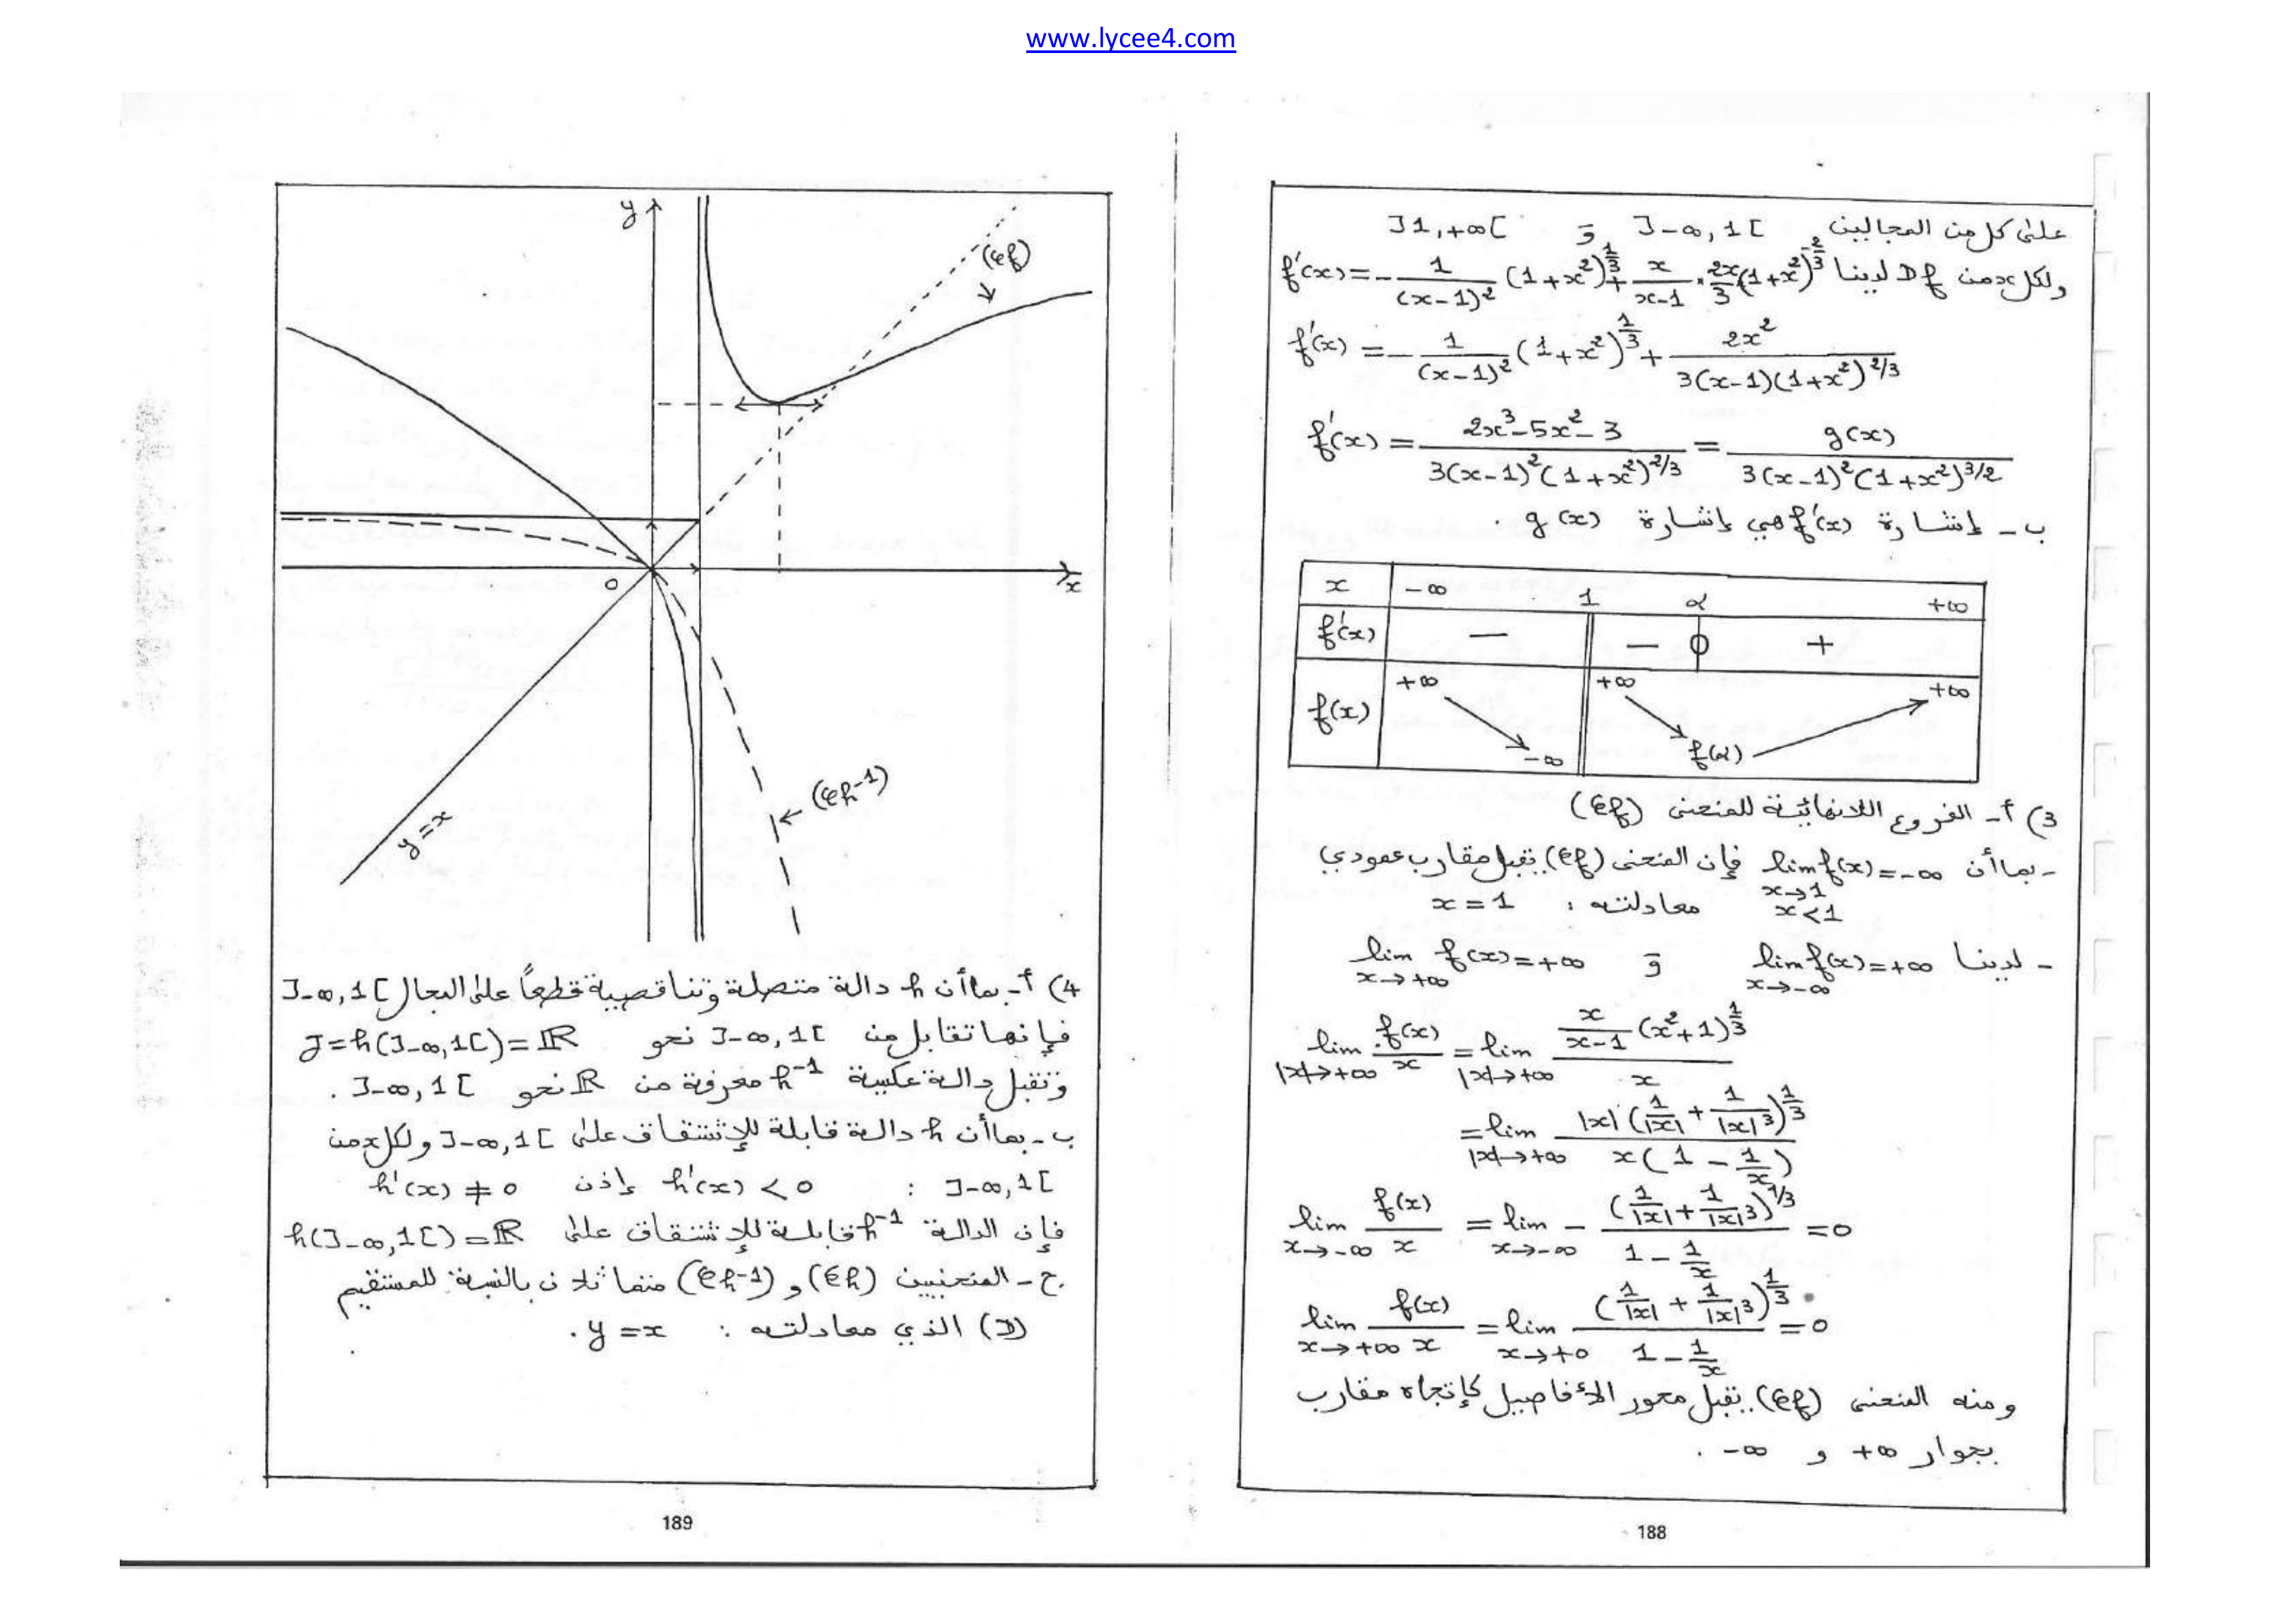 www.lycee4.com
على كل من المجالين ]-∞, 1[ و ]1, +∞[
ولكل x من Df لدينا f'(x) = -1/(x-1)² (1+x²)^(1/3) + x/(x-1) · 2x/3 (1+x²)^(-2/3)
f'(x) = -1/(x-1)² (1+x²)^(1/3) + 2x²/(3(x-1)(1+x²)^(2/3))
f'(x) = (2x³-5x²-3)/(3(x-1)²(1+x²)^(2/3)) = g(x)/(3(x-1)²(1+x²)^(3/2))
ب - إشارة f'(x) هي إشارة g(x) .
x -∞ 1 α +∞
f'(x) - - 0 +
f(x) +∞ -∞ +∞ f(α) +∞
3) أ - الفروع اللانهائية للمنحنى (Cf)
- بما أن lim f(x) = -∞ فإن المنحنى (Cf) يقبل مقارب عمودي
x→1
x<1
معادلته : x = 1
- لدينا lim f(x) = +∞ و lim f(x) = +∞
x→-∞ x→+∞
lim f(x)/x = lim (x/(x-1) (x²+1)^(1/3))/x
|x|→+∞ |x|→+∞
= lim |x| (1/|x| + 1/|x|³)^(1/3) / x(1 - 1/x)
|x|→+∞
lim f(x)/x = lim - (1/|x| + 1/|x|³)^(1/3) / (1 - 1/x) = 0
x→-∞ x→-∞
lim f(x)/x = lim (1/|x| + 1/|x|³)^(1/3) / (1 - 1/x) = 0
x→+∞ x→+0
ومنه المنحنى (Cf) يقبل محور الأفاصيل كإتجاه مقارب
بجوار +∞ و -∞ .
188
y
(Cf)
o
x
(Ch⁻¹)
y=x
4) أ - بما أن h دالة متصلة وتناقصية قطعاً على المجال ]-∞, 1[
فإنها تقابل من ]-∞, 1[ نحو J = h(]-∞, 1[) = ℝ
وتقبل دالة عكسية h⁻¹ معرفة من ℝ نحو ]-∞, 1[ .
ب - بما أن h دالة قابلة للإشتقاق على ]-∞, 1[ ولكل x من
]-∞, 1[ : h'(x) < 0 إذن h'(x) ≠ 0
فإن الدالة h⁻¹ قابلة للإشتقاق على h(]-∞, 1[) = ℝ
ج - المنحنيين (Ch) و (Ch⁻¹) متماثلان بالنسبة للمستقيم
(D) الذي معادلته : y = x .
189